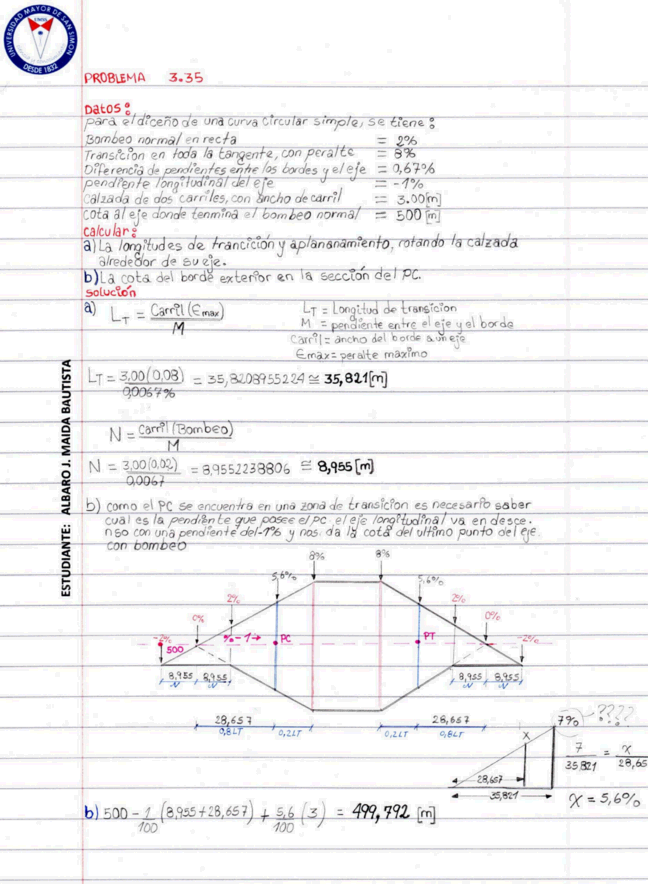 UNIVERSIDAD MAYOR DE SAN SIMON
DESDE 1832
ESTUDIANTE: ALBARO J. MAIDA BAUTISTA
PROBLEMA 3.35
Datos:
para el diceño de una curva circular simple, se tiene:
Bombeo normal en recta = 2%
Transicion en toda la tangente, con peralte = 8%
Diferencia de pendientes entre los bordes y el eje = 0,67%
pendiente longitudinal del eje = -1%
Calzada de dos carriles, con ancho de carril = 3.00[m]
cota al eje donde termina el bombeo normal = 500 [m]
calcular:
a) La longitudes de trancición y aplananamiento, rotando la calzada
alrededor de su eje.
b) La cota del borde exterior en la sección del PC.
solución
a) LT = Carril (Emax) / M
LT = Longitud de transicion
M = pendiente entre el eje y el borde
Carril = ancho del borde a un eje
Emax = peralte maximo
LT = 3,00 (0,08) / 0,0067% = 35,8208955224 ≅ 35,821[m]
N = Carril (Bombeo) / M
N = 3,00 (0,02) / 0,0067 = 8,9552238806 ≅ 8,955 [m]
b) como el PC se encuentra en una zona de transicion es necesario saber
cual es la pendiente que posee el pc, el eje longitudinal va en desce.
nso con una pendiente del -1% y nos da la cota del ultimo punto del eje
con bombeo
8% 8%
5,6% 5,6%
2% 2%
0% 0%
-2% 500 %-1→ PC PT -2%
8,955 8,955 8,955 8,955
N N N N
28,657 28,657
0,8LT 0,2LT 0,2LT 0,8LT
7% ????
X
28,657
35,821
7 / 35,821 = x / 28,65
x = 5,6%
b) 500 - 1/100 (8,955 + 28,657) + 5,6/100 (3) = 499,792 [m]